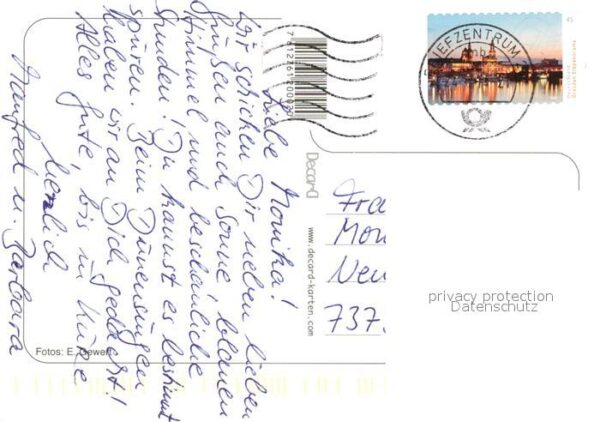 Liebe Monika!
Wir schicken Dir neben lieben
Grüßen auch Sonne, blauen
Himmel und beschauliche
Stunden! Du kannst es bestimmt
spüren. Beim Dünensingen
haben wir an Dich gedacht!
Alles Gute, bis in Kürze
herzlich
Manfred u. Barbara
Fotos: E. Gewert
Decard
www.decard-karten.com
BRIEFZENTRUM
45
Fra
Mon
Neu
737.
privacy protection
Datenschutz